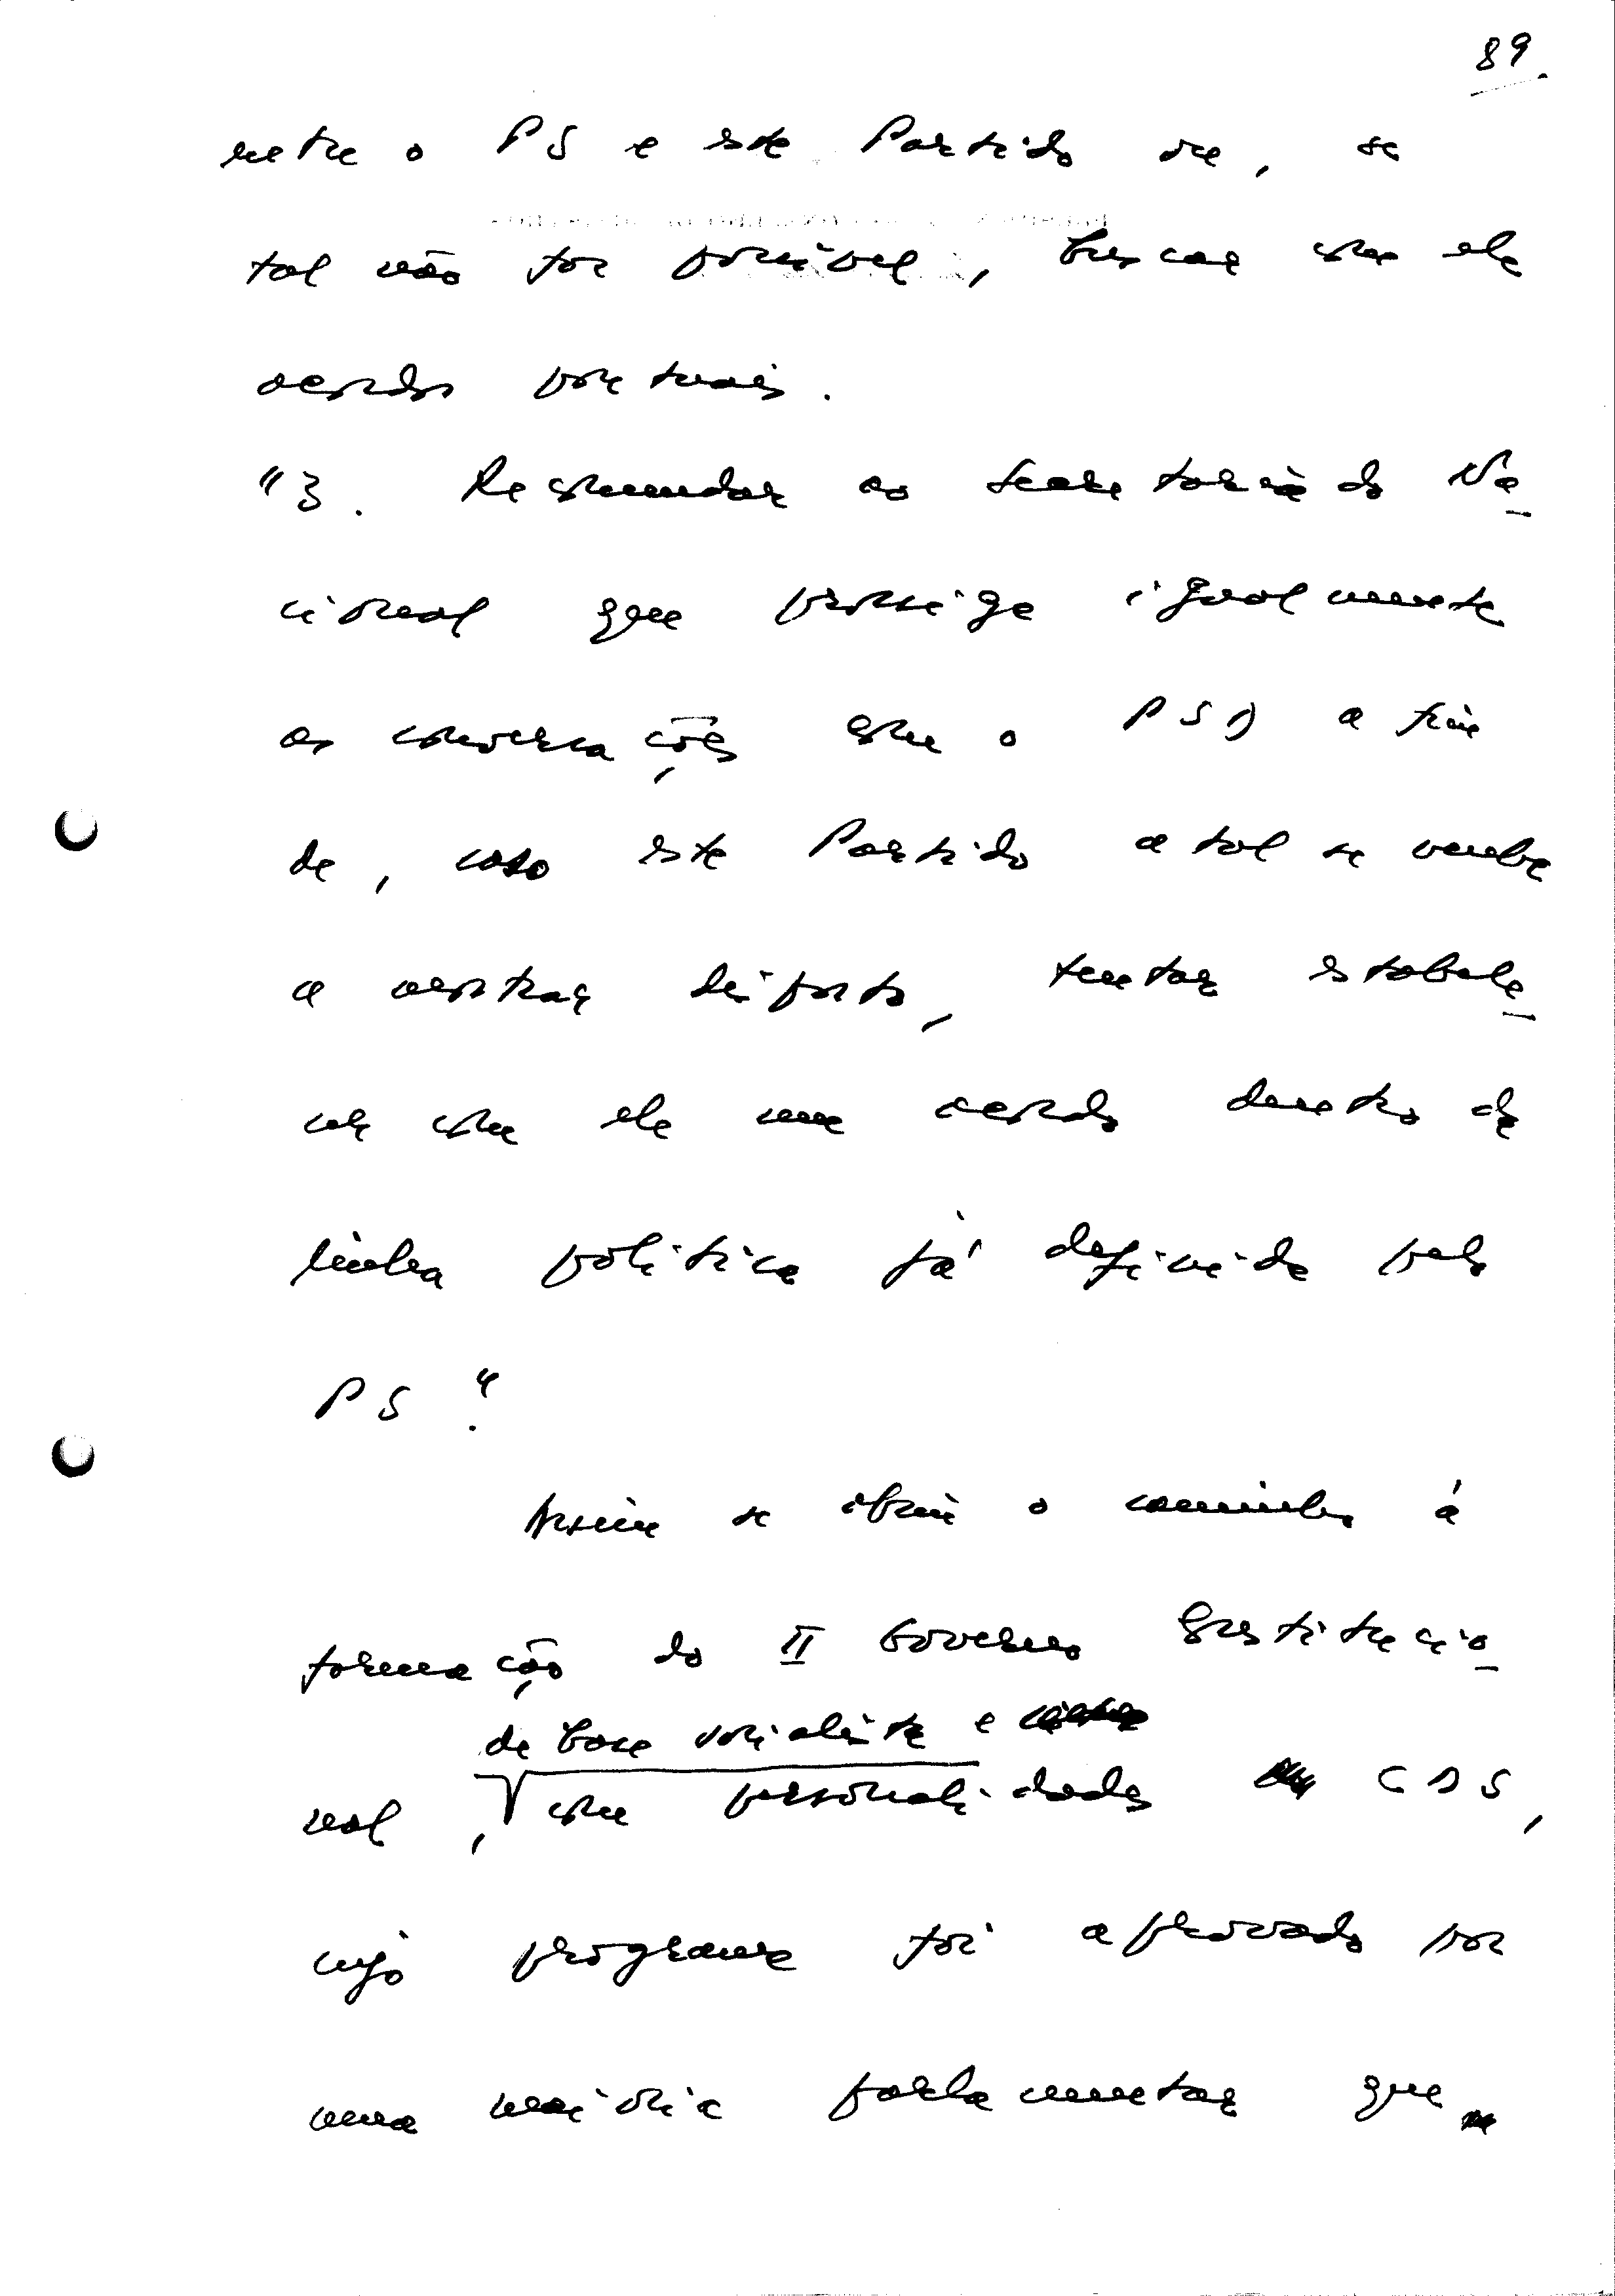 89.
entre o PS e este Partido ou, se
tal não for possível, buscar com ele
acordos pontuais.
"3. Recomendar ao Secretariado Na-
cional que prossiga igualmente
as conversações com o PSD a fim
de, caso este Partido a tal se venha
a mostrar disposto, tentar estabele-
cer com ele um acordo dentro da
linha política já definida pelo
PS."
Assim se abriu o caminho à
formação do II Governo Constitucio-
de base socialista e
nal, com personalidades CDS,
cujo programa foi aprovado por
uma maioria parlamentar que